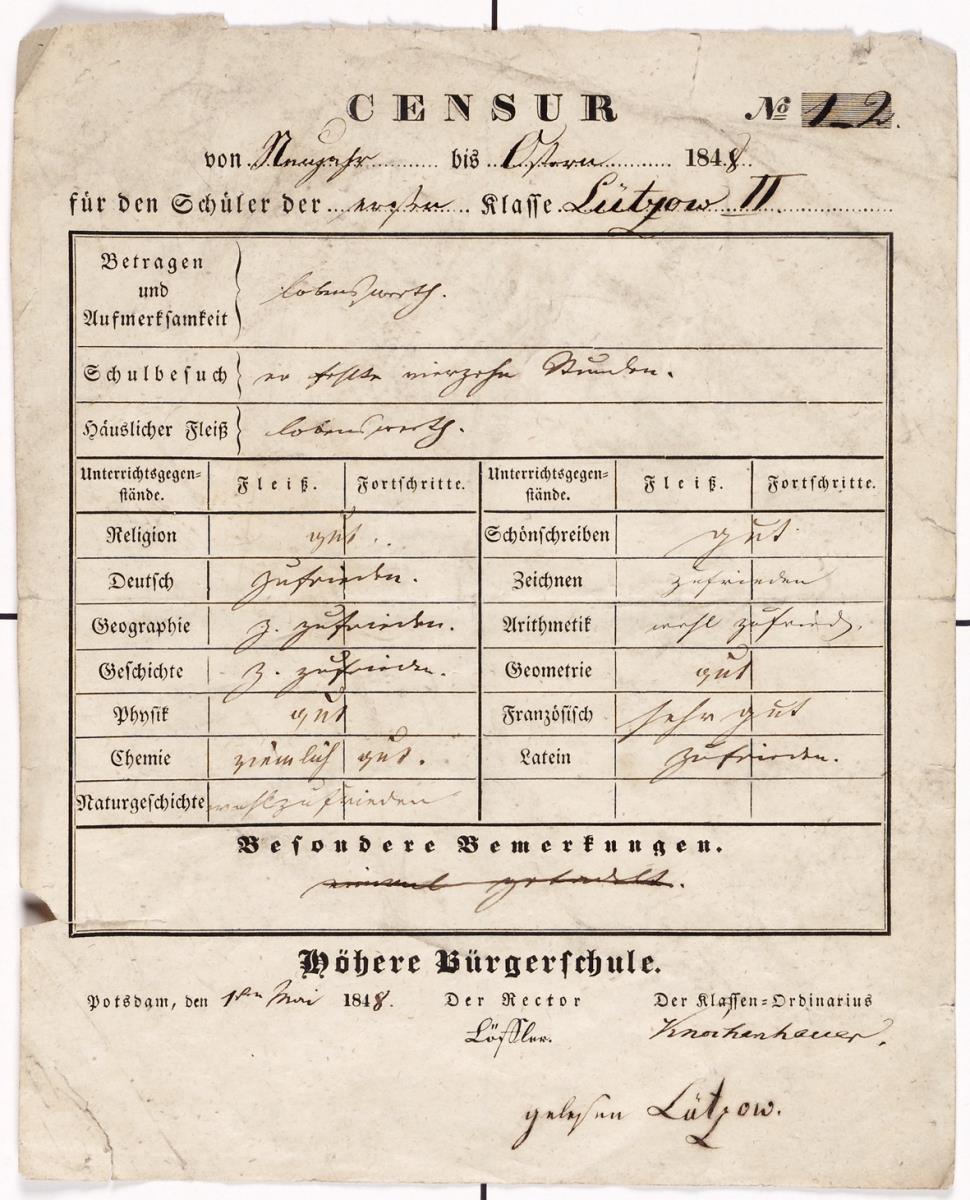 CENSUR № 1_2.
von Neujahr bis Ostern 1848.
für den Schüler der ersten Klasse Lützow II.
Betragen
und
Aufmerksamkeit
lobenswerth.
Schulbesuch er fehlte vierzehn Stunden.
Häuslicher Fleiß lobenswerth.
Unterrichtsgegen-
stände. Fleiß. Fortschritte. Unterrichtsgegen-
stände. Fleiß. Fortschritte.
Religion gut. Schönschreiben gut
Deutsch zufrieden. Zeichnen zufrieden
Geographie z. zufrieden. Arithmetik wohl zufried.
Geschichte z. zufrieden. Geometrie gut
Physik gut Französisch sehr gut
Chemie ziemlich gut. Latein zufrieden.
Naturgeschichte wohlzufrieden
Besondere Bemerkungen.
einmal getadelt.
Höhere Bürgerschule.
Potsdam, den 1ten Mai 1848. Der Rector Der Klassen-Ordinarius
Löffler. Knochenhauer.
gelesen Lützow.